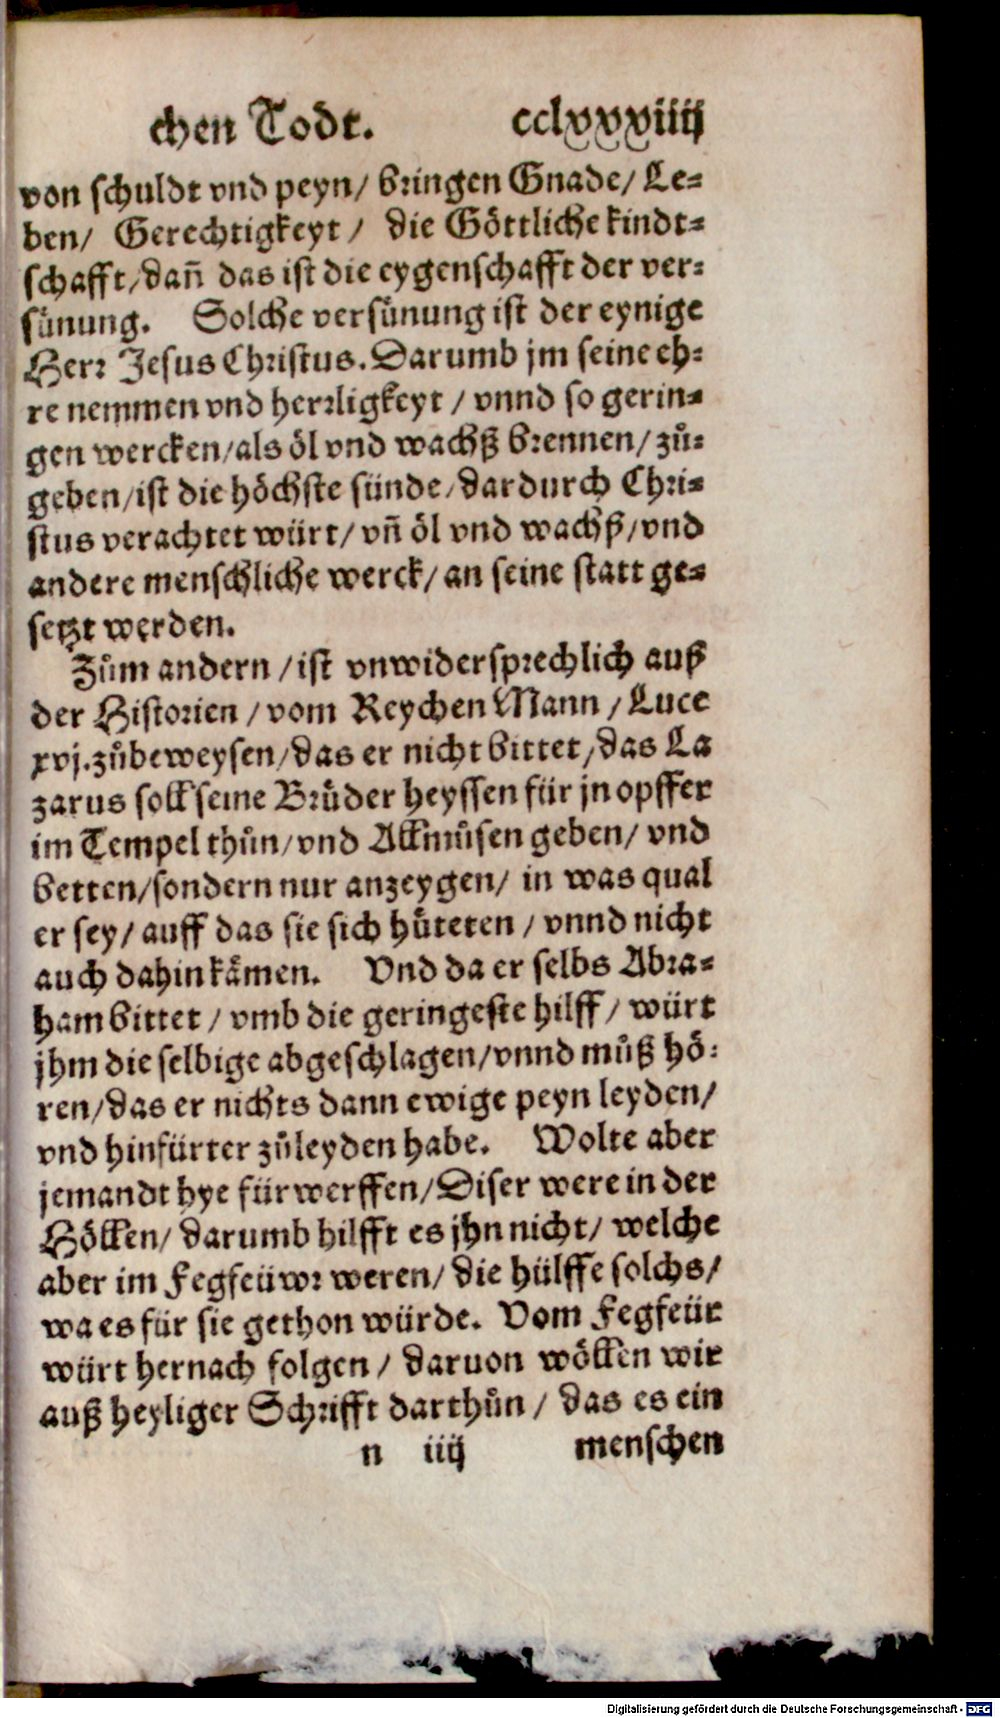 chen Todt. cclxxxiiij
von schuldt vnd peyn/ bringen Gnade/ Le-
ben/ Gerechtigkeyt / die Göttliche kindt-
schafft/dañ das ist die eygenschafft der ver-
sünung. Solche versünung ist der eynige
Herr Jesus Christus. Darumb jm seine eh-
re nemmen vnd herrligkeyt / vnnd so gerin-
gen wercken/als öl vnd wachß brennen/ zů-
geben/ist die höchste sünde/dardurch Chri-
stus verachtet würt/ vñ öl vnd wachß/vnd
andere menschliche werck/ an seine statt ge-
setzt werden.
Zům andern /ist vnwidersprechlich auß
der Historien / vom Reychen Mann / Luce
xvj.zůbeweysen/das er nicht bittet/das La
zarus soll seine Brůder heyssen für jn opffer
im Tempel thůn/vnd Allmůsen geben/ vnd
betten/sondern nur anzeygen/ in was qual
er sey/ auff das sie sich hůteten / vnnd nicht
auch dahin kämen. Vnd da er selbs Abra-
ham bittet / vmb die geringeste hilff / würt
jhm die selbige abgeschlagen/vnnd můß hö-
ren/das er nichts dann ewige peyn leyden/
vnd hinfürter zůleyden habe. Wolte aber
jemandt hye fürwerffen/Diser were in der
Höllen/ darumb hilfft es jhn nicht/ welche
aber im Fegfeüwr weren/ die hülffe solchs/
wa es für sie gethon würde. Vom Fegfeür
würt hernach folgen / daruon wöllen wir
auß heyliger Schrifft darthůn / das es ein
n iiij menschen
Digitalisierung gefördert durch die Deutsche Forschungsgemeinschaft - DFG